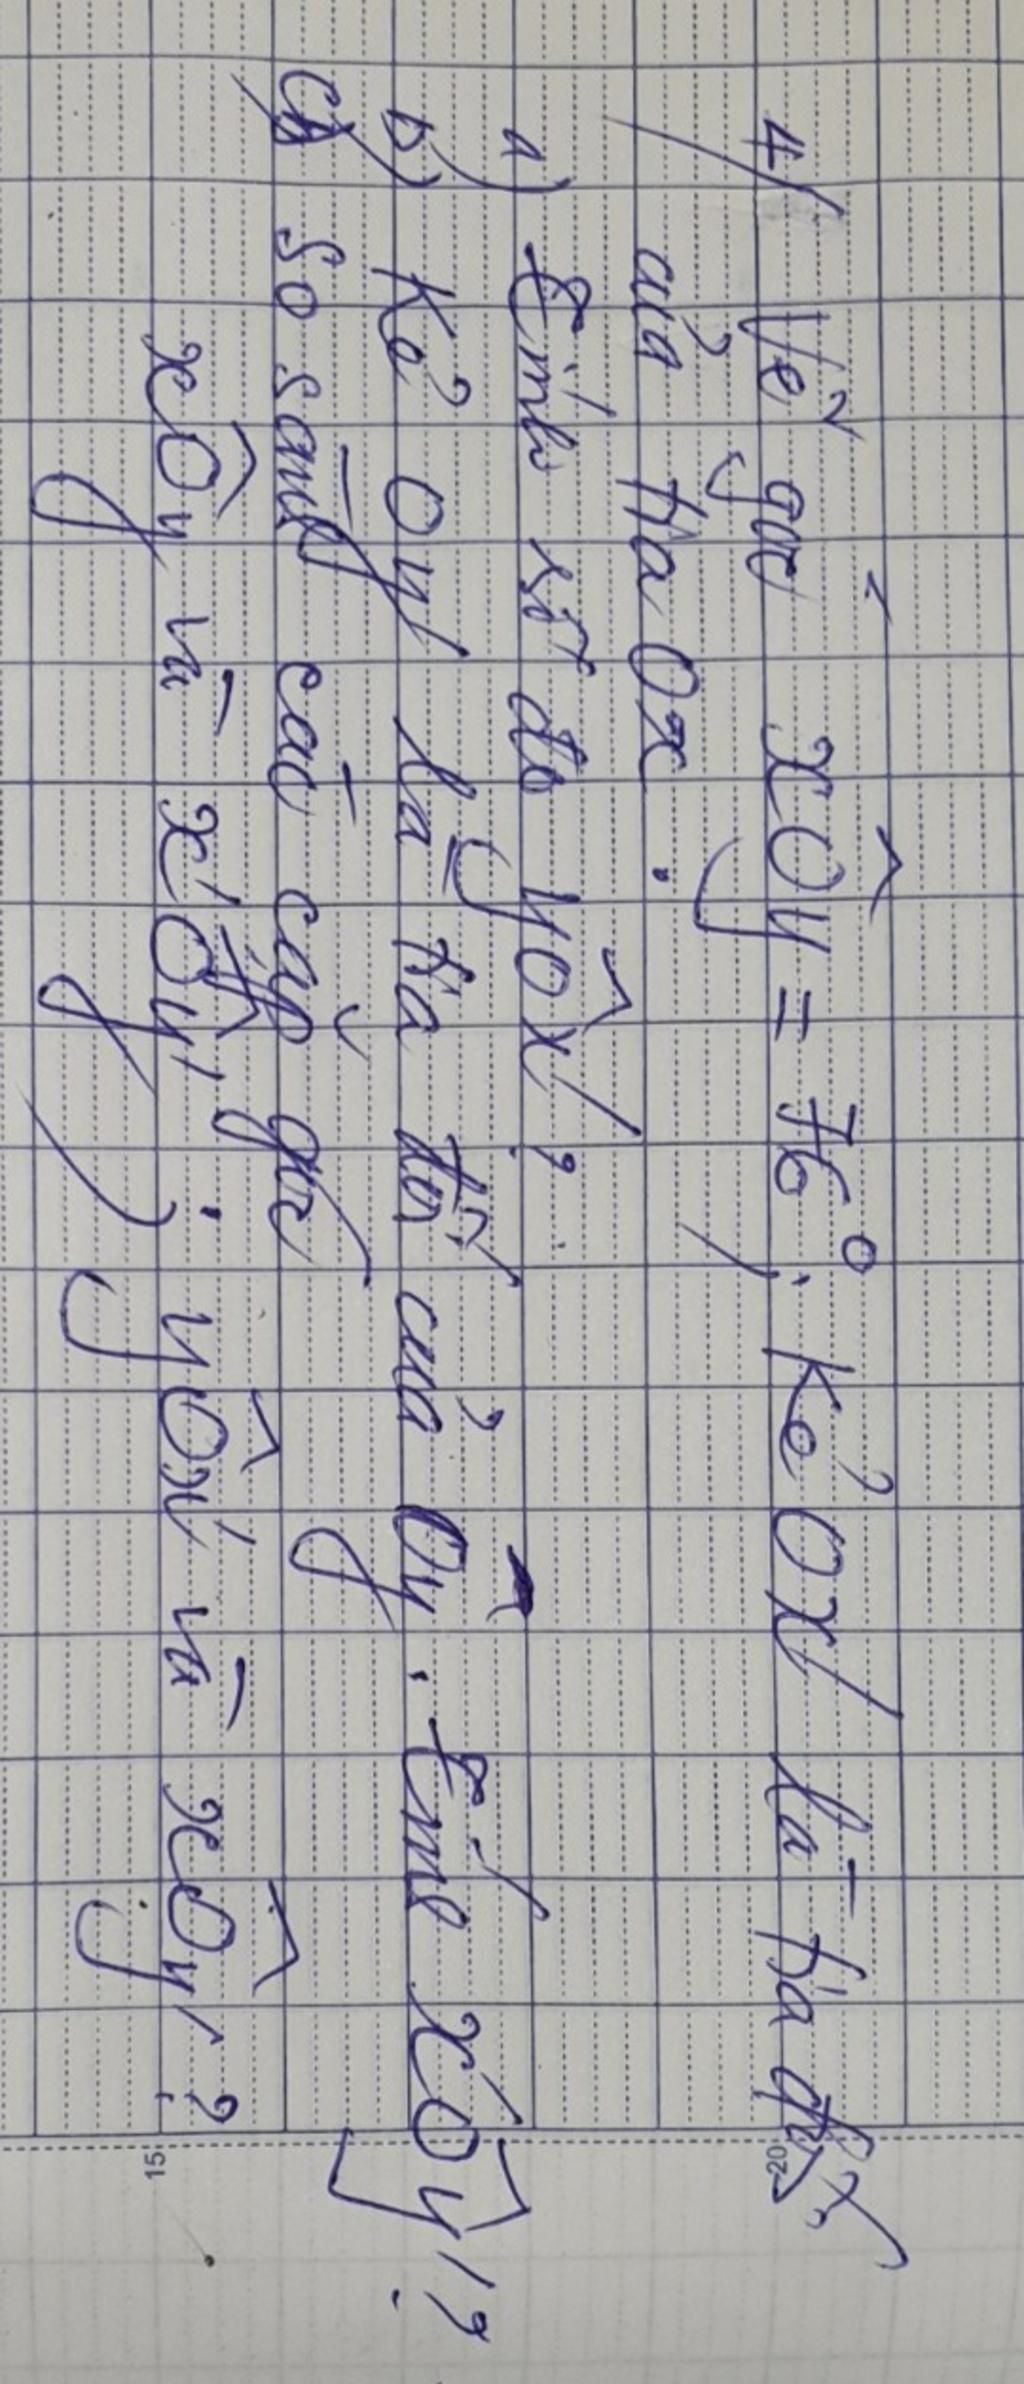 4/ Vẽ góc xÔy = 76°. Kẻ Ox' là tia đối
của tia Ox.
a) Tính số đo yÔx'?
b) Kẻ Oy' là tia đối của Oy. Tính x'Ôy'?
c) So sánh các cặp góc
xÔy và x'Ôy'; yÔx' và xÔy'?
15
20